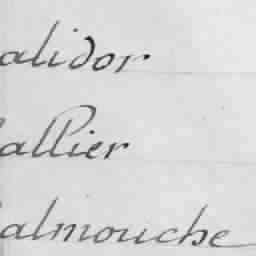 alidor
allier
almouche